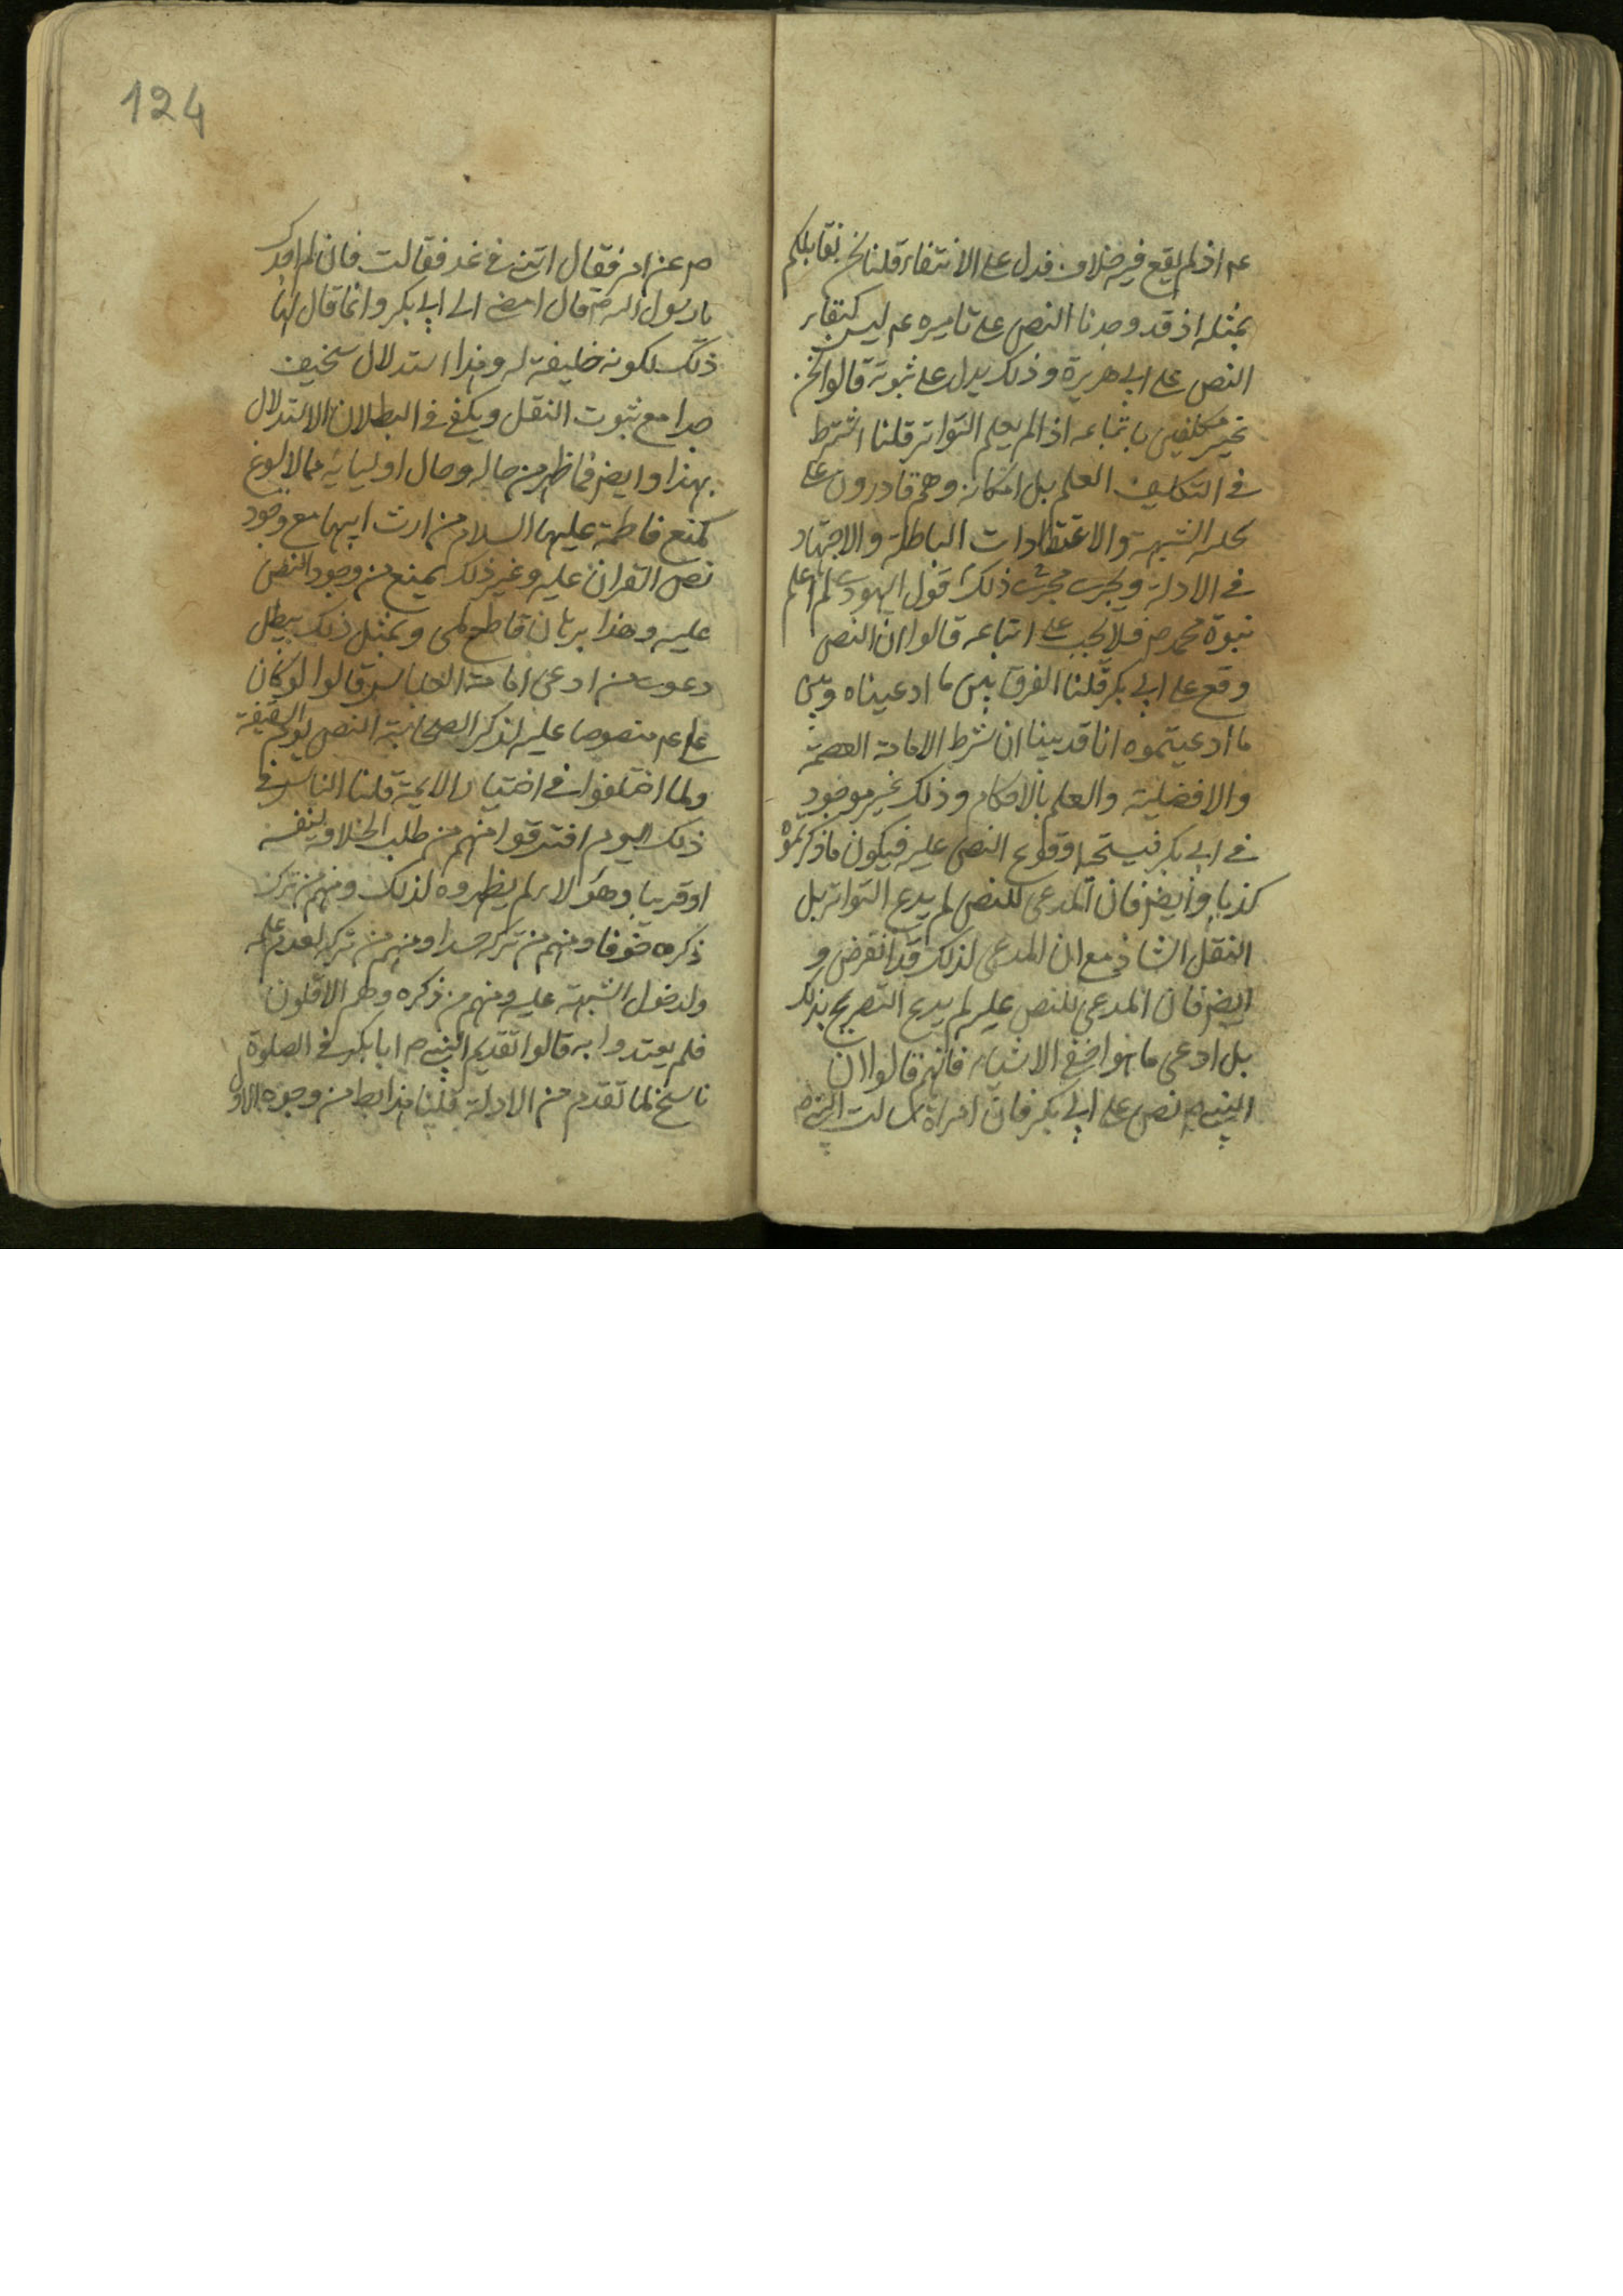 عم اذ لم يقع فيه خلاف فدل على الانتفاء قلنا نحن نقابلكم
بمثله اذ قد وجدنا النص على تاميره عم ليس كنقاء
النص على ابي هريرة وذلك يدل على ثبوته قالوا نحن
غير مكلفين باتباعه اذا لم يعلم التواتر قلنا اشترط
في التكليف العلم بل امكانه وهم قادرون على
الشبهة والاعتقادات الباطلة والاجتهاد
في الادلة ويجرى مجرى ذلك قول اليهودى لم اعلم
نبوة محمد ص فلا يجب على اتباعه قالوا ان النص
وقع على ابي بكر قلنا الفرق بين ما ادعيناه وبين
ما ادعيتموه انا قد بينا ان شرط الامامة العصمة
والافضلية والعلم بالاحكام وذلك غير موجود
في ابي بكر فيستحيل وقوع النص عليه فيكون ما ذكرتموه
كذبا وايضا فان المدعى للنص لم يدع التواتر بل
النقل الشاذ مع ان المدعى لذلك قد انقرض و
ايضا فان المدعى للنص عليه لم يدع التصريح بذلك
بل ادعى ما هو اخفى الاشياء فانهم قالوا ان
النبي ص نص على ابي بكر فان امراة سالت النبي ص
124
ص عن امر فقال اتيني في غد فقالت فان لم ادرك
يا رسول الله ص قال امضى الى ابي بكر وانما قال لها
ذلك لكونه خليفة له وهذا استدلال سخيف
جدا مع ثبوت النقل ويكفي في البطلان الاستدلال
بهذا وايضا فما ظهر من حاله وحال اوليائه مما لا
كمنع فاطمة عليها السلام من ارث ابيها مع وجود
نص القران عليه وغير ذلك يمنع من وجود النص
عليه وهذا برهان قاطع لمى وبمثل ذلك يبطل
دعوى من ادعى امامة العباس قالوا لو كان
على عم منصوصا عليه لذكر الصحابة النص يوم السقيفة
ولما اختلفوا في اختيار الائمة قلنا الناس في
ذلك اليوم افترقوا منهم من طلب الخلافة لنفسه
او قريب وهؤلاء لم يظهروه لذلك ومنهم من ترك
ذكره خوفا ومنهم من تركه حسدا ومنهم من تركه لعدم علمه
ولدخول الشبهة عليه ومنهم من ذكره وهم الاقلون
فلم يعتدوا به قالوا تقديم النبي ص ابا بكر في الصلوة
ناسخ لما تقدم من الادلة قلنا هذا بط من وجوه الاول